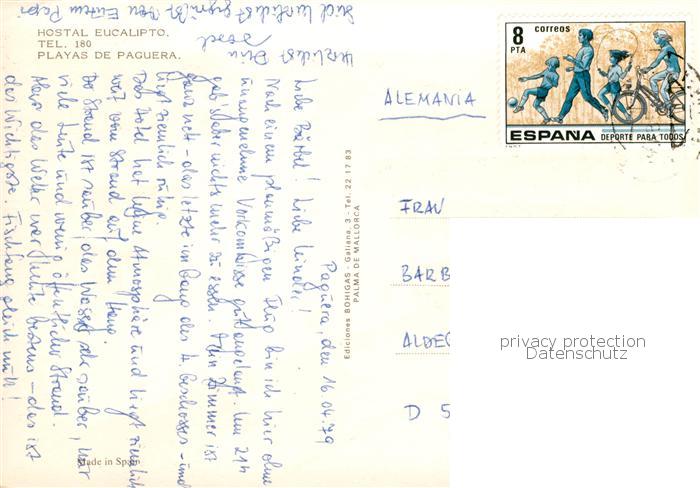 HOSTAL EUCALIPTO.
TEL. 180
PLAYAS DE PAGUERA.
Paguera, den 16.04.79
Liebe Bärbel! Liebe Kinder!
Nach einem planmäßigen Flug bin ich hier ohne
unangenehme Vorkommnisse gut angelangt. Um 21h
gab's aber nichts mehr zu essen. Mein Zimmer ist
ganz nett - das letzte im Gang des 1. Geschosses - und
liegt ziemlich ruhig.
Das Hotel hat Atmosphäre und liegt ziemlich
weit vom Strand auf dem Hang.
Der Strand ist sauber, das Wasser sehr sauber, nur
viele Leute und wenig öffentlicher Strand.
Aber das Wetter war heute bestens - das ist
das Wichtigste. gleich null!
Seid herzlichst gegrüßt von Eurem Papi
Herzlichst Dein
Ediciones BOHIGAS - Galiana, 3 - Tel. 22 17 83
PALMA DE MALLORCA
Made in Spain
8 PTA
correos
ESPAÑA
DEPORTE PARA TODOS
ALEMANIA
FRAU
BARB
ALDEG
D 5
privacy protection
Datenschutz